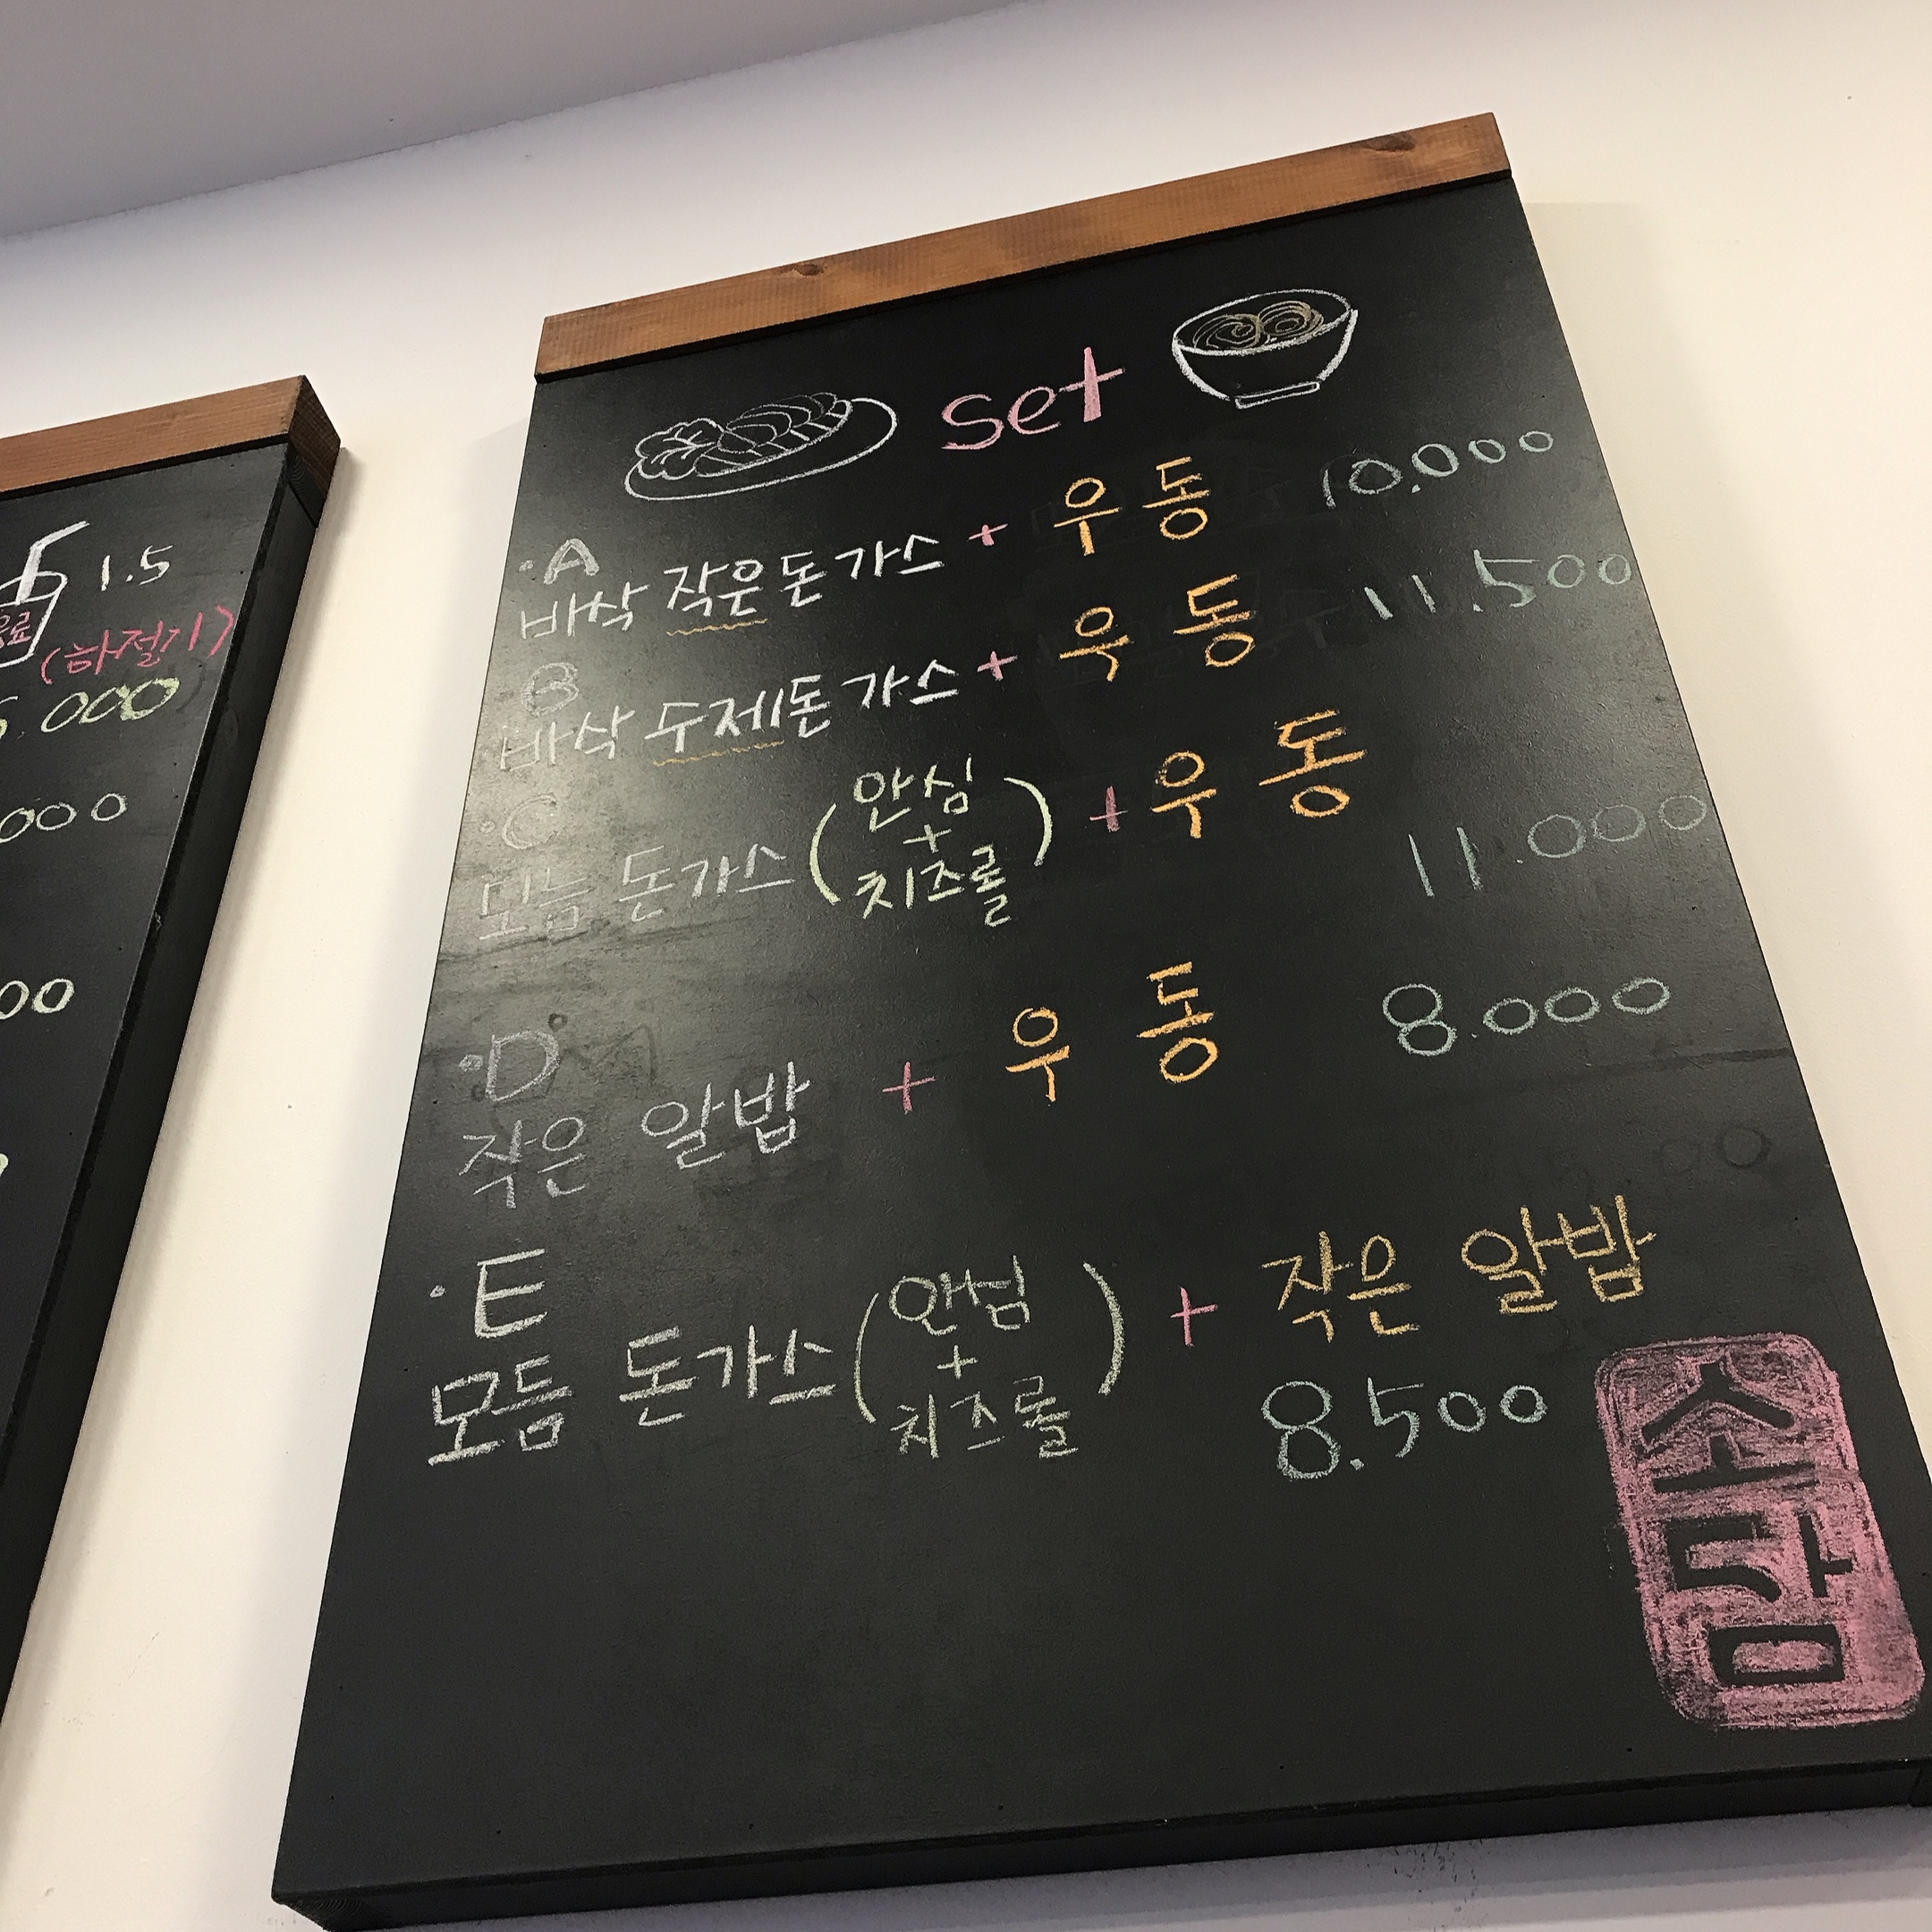 1.5
(하절기)
.000
000
00
set
·A
바삭 작은돈가스 + 우동 10.000
B
바삭 수제돈가스 + 우동 11.500
·C
모듬 돈가스 (안심 + 치즈롤) + 우동
11.000
·D
작은 알밥 + 우동 8.000
·E
모듬 돈가스 (안심 + 치즈롤) + 작은 알밥
8.500
소담